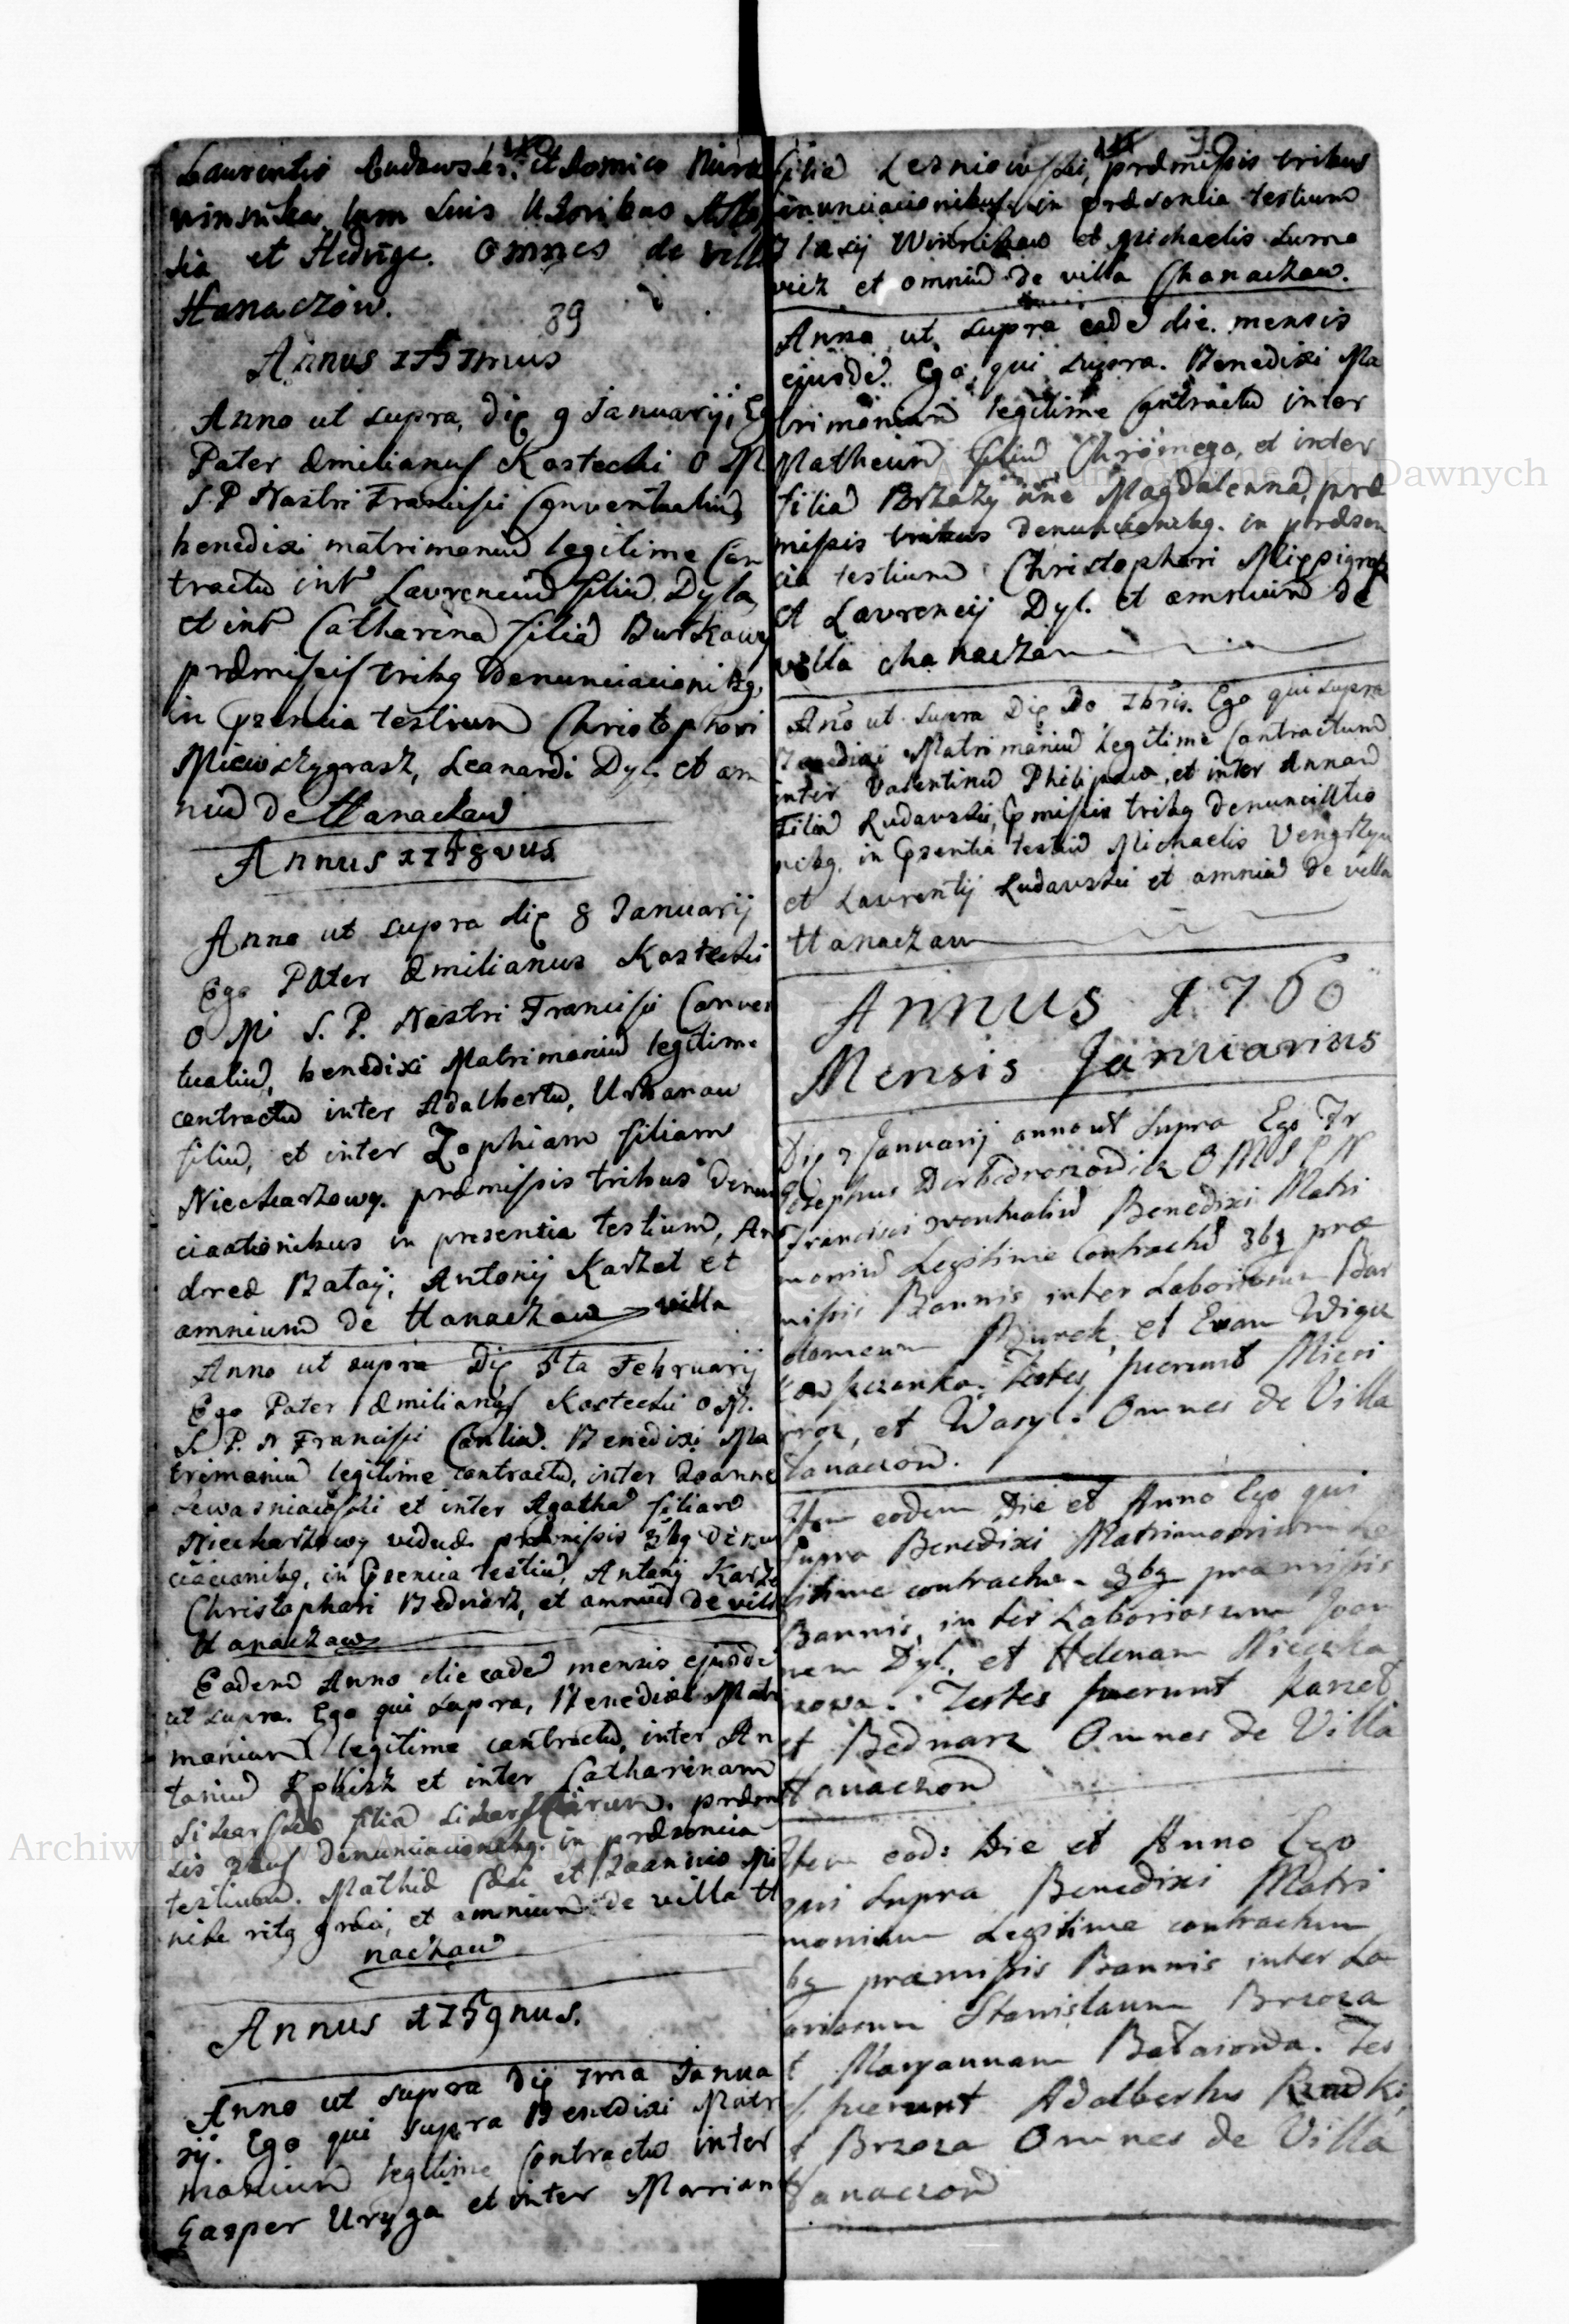 Laurentio Ludawski et Domico Mura
winsukea, tum Suis Uxoribus
sia et Heduge. Omnes de villa
Hanaczow.
89
Annus 1757mus
Anno ut supra, die 9 Januarij, Eg
Pater Æmilianus Kostecki O M
S. P Nostri Francisci Conventualiu,
benedixi matrimoniu legitime Con
tractu int Laurenciu filiu Dyla,
et int Catharina filia Burkowy
præmissis tribg denunciacionibg,
in Pzencia testium Christophori
Mieiwszygrasz, Leonardi Dyl. et om
niu de Hanaczow
Annus 1758vus
Anno ut supra die 8 Januarij
Ego Pater Æmilianus Kostecki
O Mi S. P. Nostri Francisci Conven
tualiu, benedixi Matrimoniu legitime
contractu inter Adalbertu, Urbanow
filiu, et inter Zophiam filiam
Niecharzowy. præmissis tribus denun
ciaationibus in presentia testium, An
dreæ Batoij, Antonij Karzet et
omnium de Hanaczow villa
Anno ut supra Die 5ta Februarij
Ego Pater Æmilianus Kostecki O M.
S. P. N Francisci Conliu. Benedixi Ma
trimoniu legitime contractu, inter Joanne
Lewosniaiofski et inter Agatha filiam
Niecharzowy viduæ præmissis 3bg denun
ciacionibg, in Psencia testiu, Antonij Karze
Christophori Bednarz, et omniu de villa
Hanaczow
Eadem Anno die eade mensis ejusde
ut supra. Ego qui supra, Benedixi Matri
monium legitime contractu, inter An
toniu et inter Catharinam
filia præmi
sis 3bus denunciacionibg. in præsencia
testium. Mathiæ et Joannis Mi
ritg græci, et omnium de villa H
naczow
Annus 1759nus.
Anno ut supra Die 7ma Janua
rij. Ego qui supra Benedixi Matri
monium legitime Contractu inter
Gasper Uryga et inter Marrian
filia Lesniowski, præmissis tribus
inunciacionibus in præsentia testium
Blasij Winnikow et Michaelis Surma
vicz et omniu de villa Chanaczow.
Anno ut supra eade die. mensis
ejusde. Ego qui supra. Benedixi Ma
trimonium legitime Contractu inter
Matheum filiu Chromego, et inter
filia Brzozy nne Magdalenna, præ
missis tribus denuncionibg. in præsen
cia testium Christophori Miepsigrosz
et Laurencij Dyl. et omnium de
villa Chanaczow
Ano ut supra Die 30 7bris. Ego qui supra
Benedixi Matrimoniu legitime Contractum
inter Valentinu Philipow, et inter Annam
Filia Ludavski, Pmissis tribg denunciatio
nibg. in Psentia testiu Michaelis Vengrzyn
et Laurentij Ludavski et omniu de villa
Hanaczow
Annus 1760
Mensis Januarius
Die 7 Januarij anno ut supra Ego Fr
Josephus Derbedroszowicz O M S P N
Francisci Conventualiu Benedixi Matri
moniu Legitime Contractu 3bg præ
missis Bannis inter Laboriosum Bar
tolomeum Burek, et Evam Wigu
Testes fuerunt Mieci
et Wasyl. Omnes de Villa
Hanaczow.
Item eodem Die et Anno Ego qui
supra Benedixi Matrimonium Le
gitime contractu. 3bg præmissis
Bannis, inter Laboriosum Joan
nem Dyl, et Helenam Niecha
rzowa. Testes fuerunt Karzet
et Bednarz Omnes de Villa
Hanaczow
Item eod: Die et Anno Ego
qui supra Benedixi Matri
monium Legitime contractum
bg præmissis Bannis inter La
boriosum Stanislaum Brzoza
et Maryannam Bataiowa. Tes
fuerunt Adalbertus Rudki,
et Brzoza Omnes de Villa
Hanaczow
Archiwum Główne Akt Dawnych